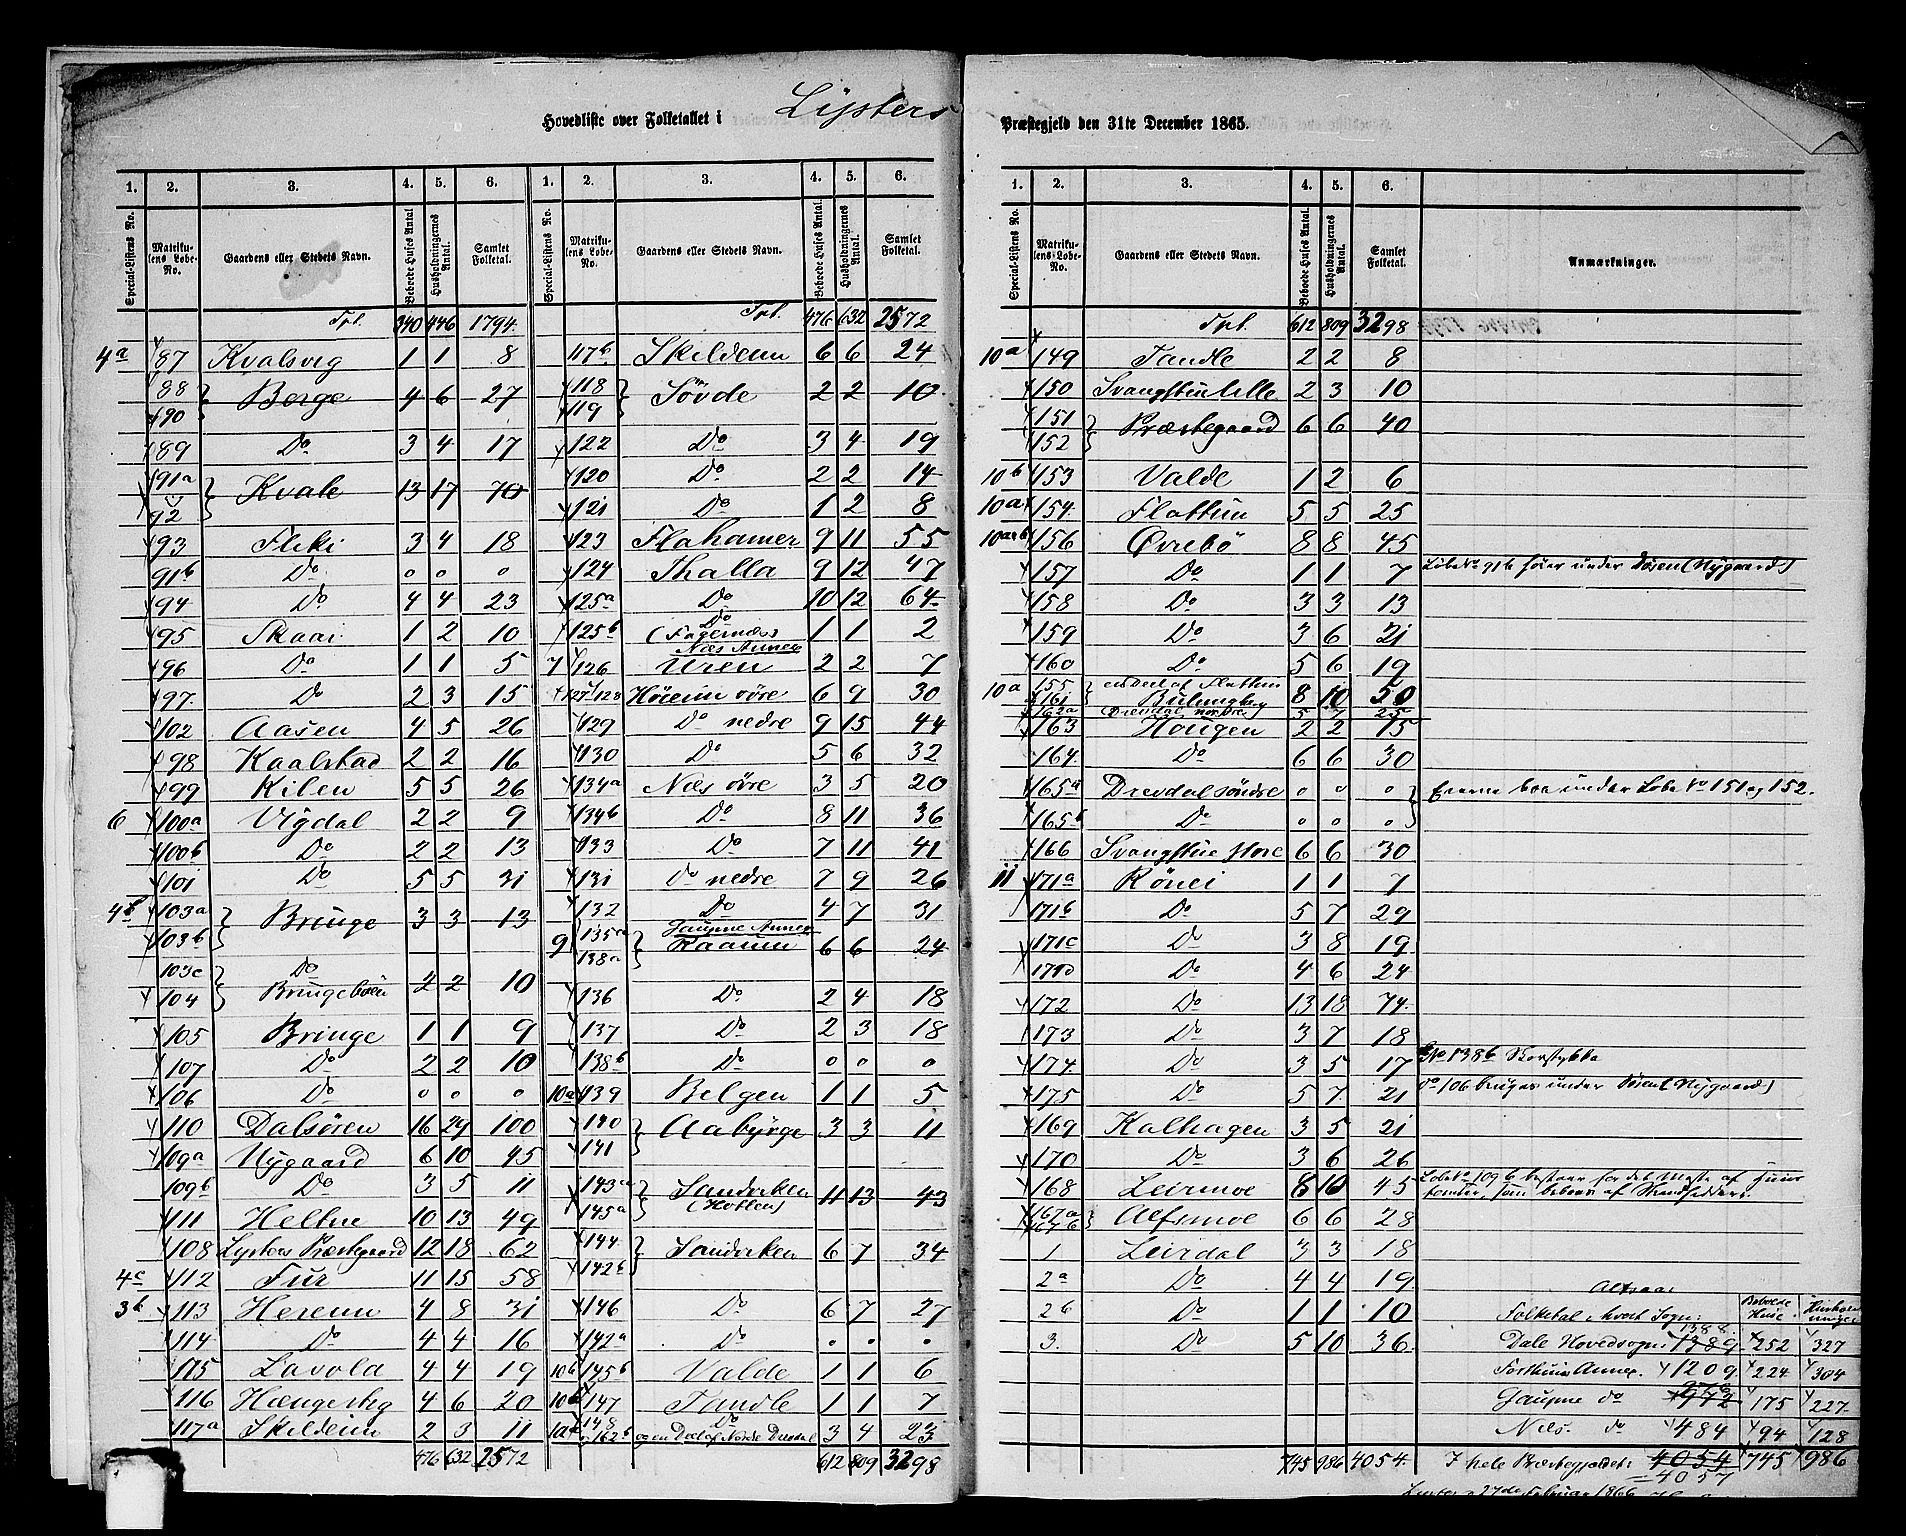 Hovedliste over Folketallet i Lysters Præstegjeld den 31te December 1865.
1. 2. 3. 4. 5. 6.
Special-Listens No. Matrikulens Løbe-No. Gaardens eller Stedets Navn. Beboede Huses Antal. Husholdningernes Antal. Samlet Folketal.
Tpt. 340 446 1794
4a 87 Kvalsvig 1 1 8
88 90 } Berge 4 6 27
89 Do 3 4 17
91a 92 } Kvale 13 17 70
93 Fleki 3 4 18
91b Do 0 0 0
94 Do 4 4 23
95 Skaai 1 2 10
96 Do 1 1 5
97 Do 2 3 15
102 Aasen 4 5 26
98 Kaalstad 2 2 16
99 Kilen 5 5 26
6 100a Vigdal 2 2 9
100b Do 2 2 13
101 Do 5 5 31
4b 103a 103b } Bringe 3 3 13
103c 104 } Do Bringebøen 2 2 10
105 Bringe 1 1 9
107 Do 2 2 10
106 Do 0 0 0
110 Dalsøren 16 29 100
109a Nygaard 6 10 45
109b Do 3 5 11
111 Heltne 10 13 49
108 Lysters Præstegaard 12 18 62
4c 112 Fur 11 15 58
3b 113 Hereim 4 8 31
114 Do 4 4 16
115 Lavold 4 4 19
116 Hængerheg 4 6 20
117a Skildeim 2 3 11
476 632 2572
1. 2. 3. 4. 5. 6.
Special-Listens No. Matrikulens Løbe-No. Gaardens eller Stedets Navn. Beboede Huses Antal. Husholdningernes Antal. Samlet Folketal.
Tpt. 476 632 2572
117b Skildeim 6 6 24
118 119 } Søvde 2 2 10
122 Do 3 4 19
120 Do 2 2 14
121 Do 1 2 8
123 Flahamer 9 11 55
124 Thalla 9 12 47
125a Do 10 12 64
125b Do (Fagernæs) 1 1 2
Næs Annex
7 126 Uren 2 2 7
127 128 Høieim øvre 6 9 30
129 Do nedre 9 15 44
130 Do 5 6 32
134a Næs øvre 3 5 20
134b Do 8 11 36
133 Do 7 11 41
131 do nedre 7 9 26
132 Do 4 7 31
Gaupne Annex
9 135a 138a } Raaum 6 6 24
136 Do 2 4 18
137 Do 2 3 18
138b Do 0 0 0
10a 139 Bolgen 1 1 5
140 141 } Aabjørge 3 3 11
143a 145a } Sandviken (Hotlen) 11 13 43
144 142b } Sandviken 6 7 34
146 Do 6 7 27
142a Do 0 0 0
10b 145b Valde 1 1 6
10b 147 Tandle 1 1 7
10a 148 og 162b Do og en Deel af Nordre Dresdal 3 4 23
612 809 3298
1. 2. 3. 4. 5. 6.
Special-Listens No. Matrikulens Løbe-No. Gaardens eller Stedets Navn. Beboede Huses Antal. Husholdningernes Antal. Samlet Folketal. Anmærkninger.
Tpt. 612 809 3298
10a 149 Tandle 2 2 8
150 Svangstu lille 2 3 10
151 152 } Præstegaard 6 6 40
10b 153 Valde 1 2 6
10a 154 Flattun 5 5 25
10a+b 156 Øvrebø 8 8 45
157 Do 1 1 7 Løbe No 91b høier under Døsen (Nygaard)
158 Do 3 3 13
159 Do 3 6 21
160 Do 5 6 19
10a 155 161 } en deel af Flattun 8 10 50
162a Dresdal nordre 5 7 25
163 Hougen 2 2 15
164 Do 6 6 30
165a Dresdal søndre 0 0 0
165b Do 0 0 0 } Eierne boe under Løbe No 151 og 152.
166 Svangstue store 6 6 30
11 171a Rønei 1 1 7
171b Do 5 7 29
171c Do 3 8 19
171d Do 4 6 24
172 Do 13 18 74
173 Do 3 7 18
174 Do 3 5 17 No 138b Skovstykke
175 Do 5 7 21 do 106 bruges under Døsen (Nygaard)
169 Kalhagen 3 5 21
170 Do 3 6 26
168 Leirmoe 8 10 45 Løbe No 109b bestaar for det Meste af Huustomter, som beboes af Strandsiddere.
167a 167b } Alfsmoe 6 6 28
1 Leirdal 3 3 18
2a Do 4 4 19
2b Do 1 1 10
3. Do 5 10 36
745 986 4054
Altsaa:
Folketal i hvert Sogn: Bebolde Huse. Husholdninger
Dale Hovedsogn 1388 1389 252 327
Forthuns Annex. 1209 224 304
Gaupne do 972 175 227
Næs. do 484 94 128
I hele Præstegjeldet: 4054 745 986
= 4057
Lyster 27de Februar 1866